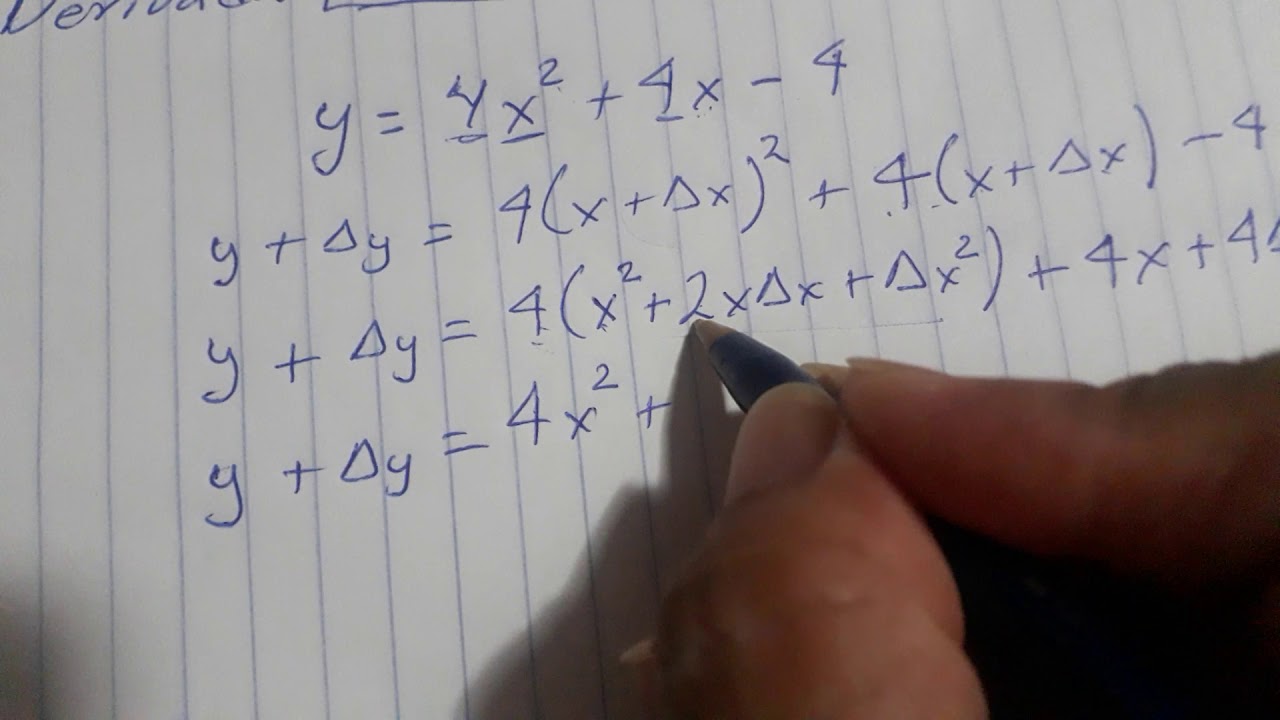 y = 4x² + 4x - 4
y + Δy = 4(x + Δx)² + 4(x + Δx) - 4
y + Δy = 4(x² + 2xΔx + Δx²) + 4x + 4Δ
y + Δy = 4x² +